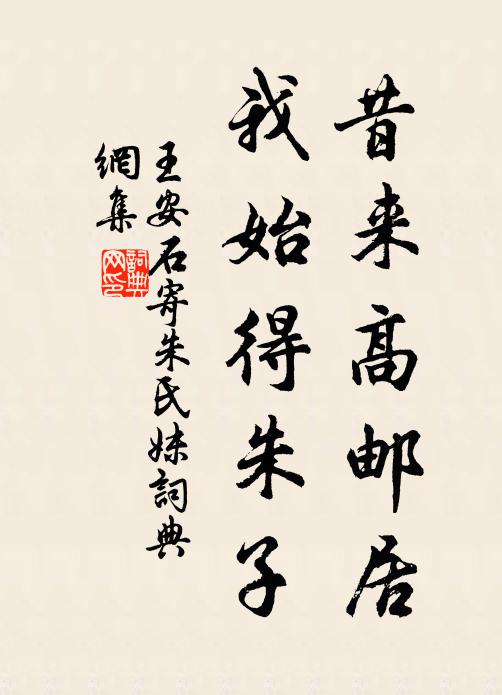 昔来高邮居
我始得朱子
王安石寄朱氏妹詞典
網集
詞典
网印